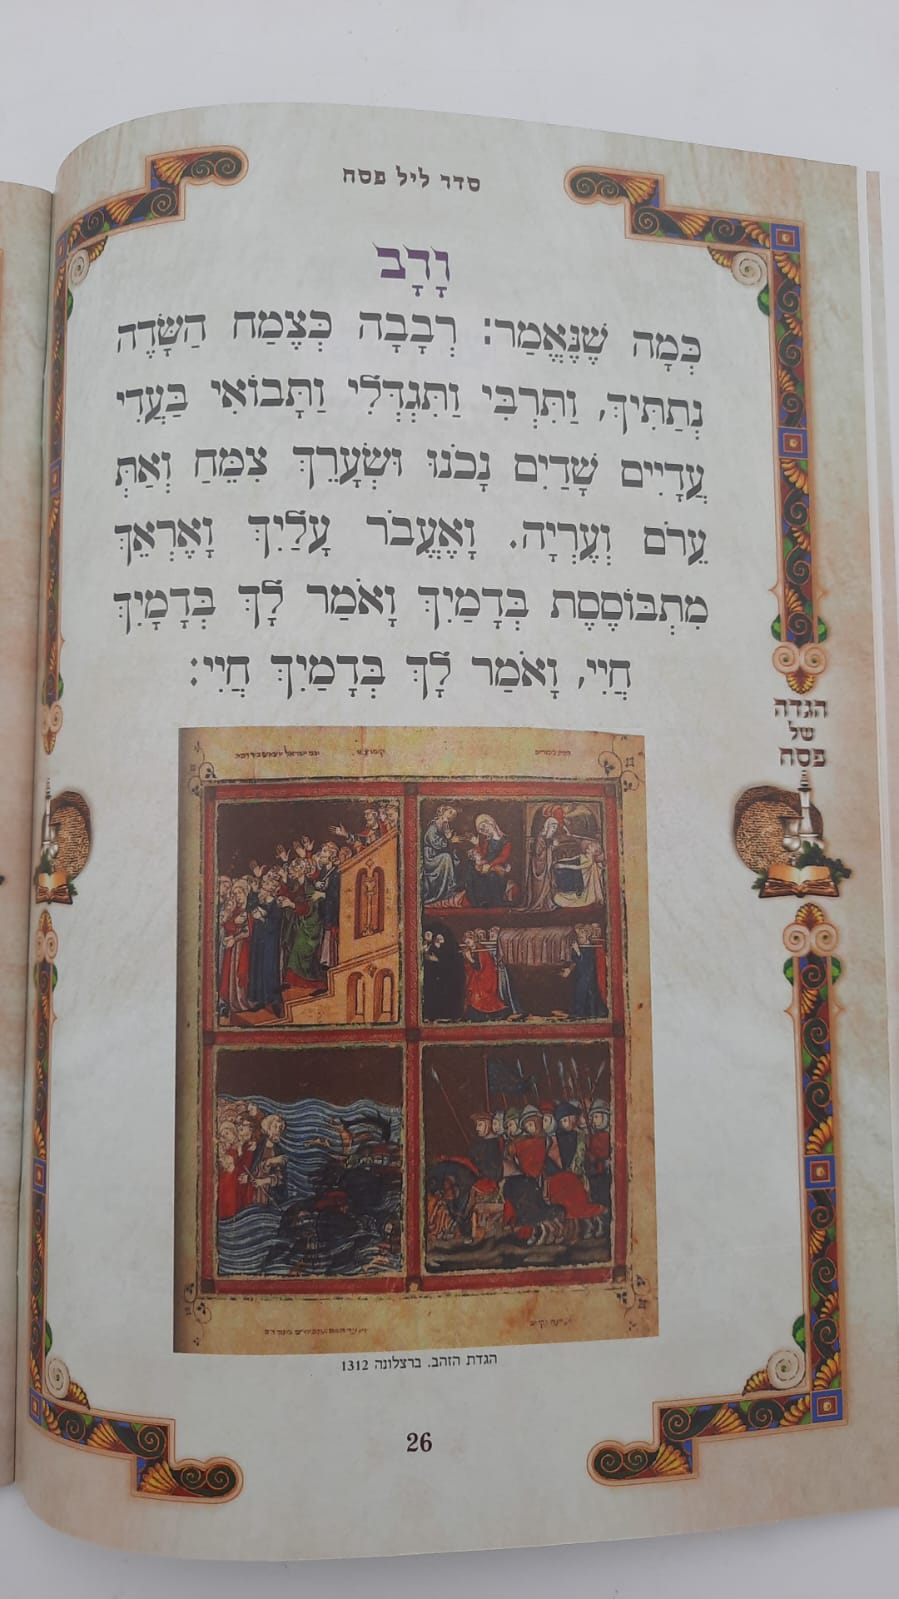 סדר ליל פסח
וָרָב
כְּמָה שֶׁנֶּאֱמַר: רְבָבָה כְּצֶמַח הַשָּׂדֶה
נְתַתִּיךְ, וַתִּרְבִּי וַתִּגְדְּלִי וַתָּבוֹאִי בַּעֲדִי
עֲדָיִים שָׁדַיִם נָכֹנוּ וּשְׂעָרֵךְ צִמֵּחַ וְאַתְּ
עֵרֹם וְעֶרְיָה. וָאֶעֱבֹר עָלַיִךְ וָאֶרְאֵךְ
מִתְבּוֹסֶסֶת בְּדָמַיִךְ וָאֹמַר לָךְ בְּדָמַיִךְ
חֲיִי, וָאֹמַר לָךְ בְּדָמַיִךְ חֲיִי:
הגדה
של
פסח
הגדת הזהב. ברצלונה 1312
26